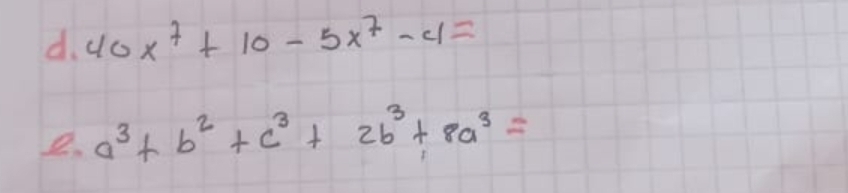 d. 40x⁷ + 10 - 5x⁷ - 4 =
e. a³ + b² + c³ + 2b³ + 8a³ =